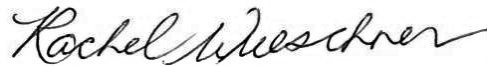 Rachel Wueschner